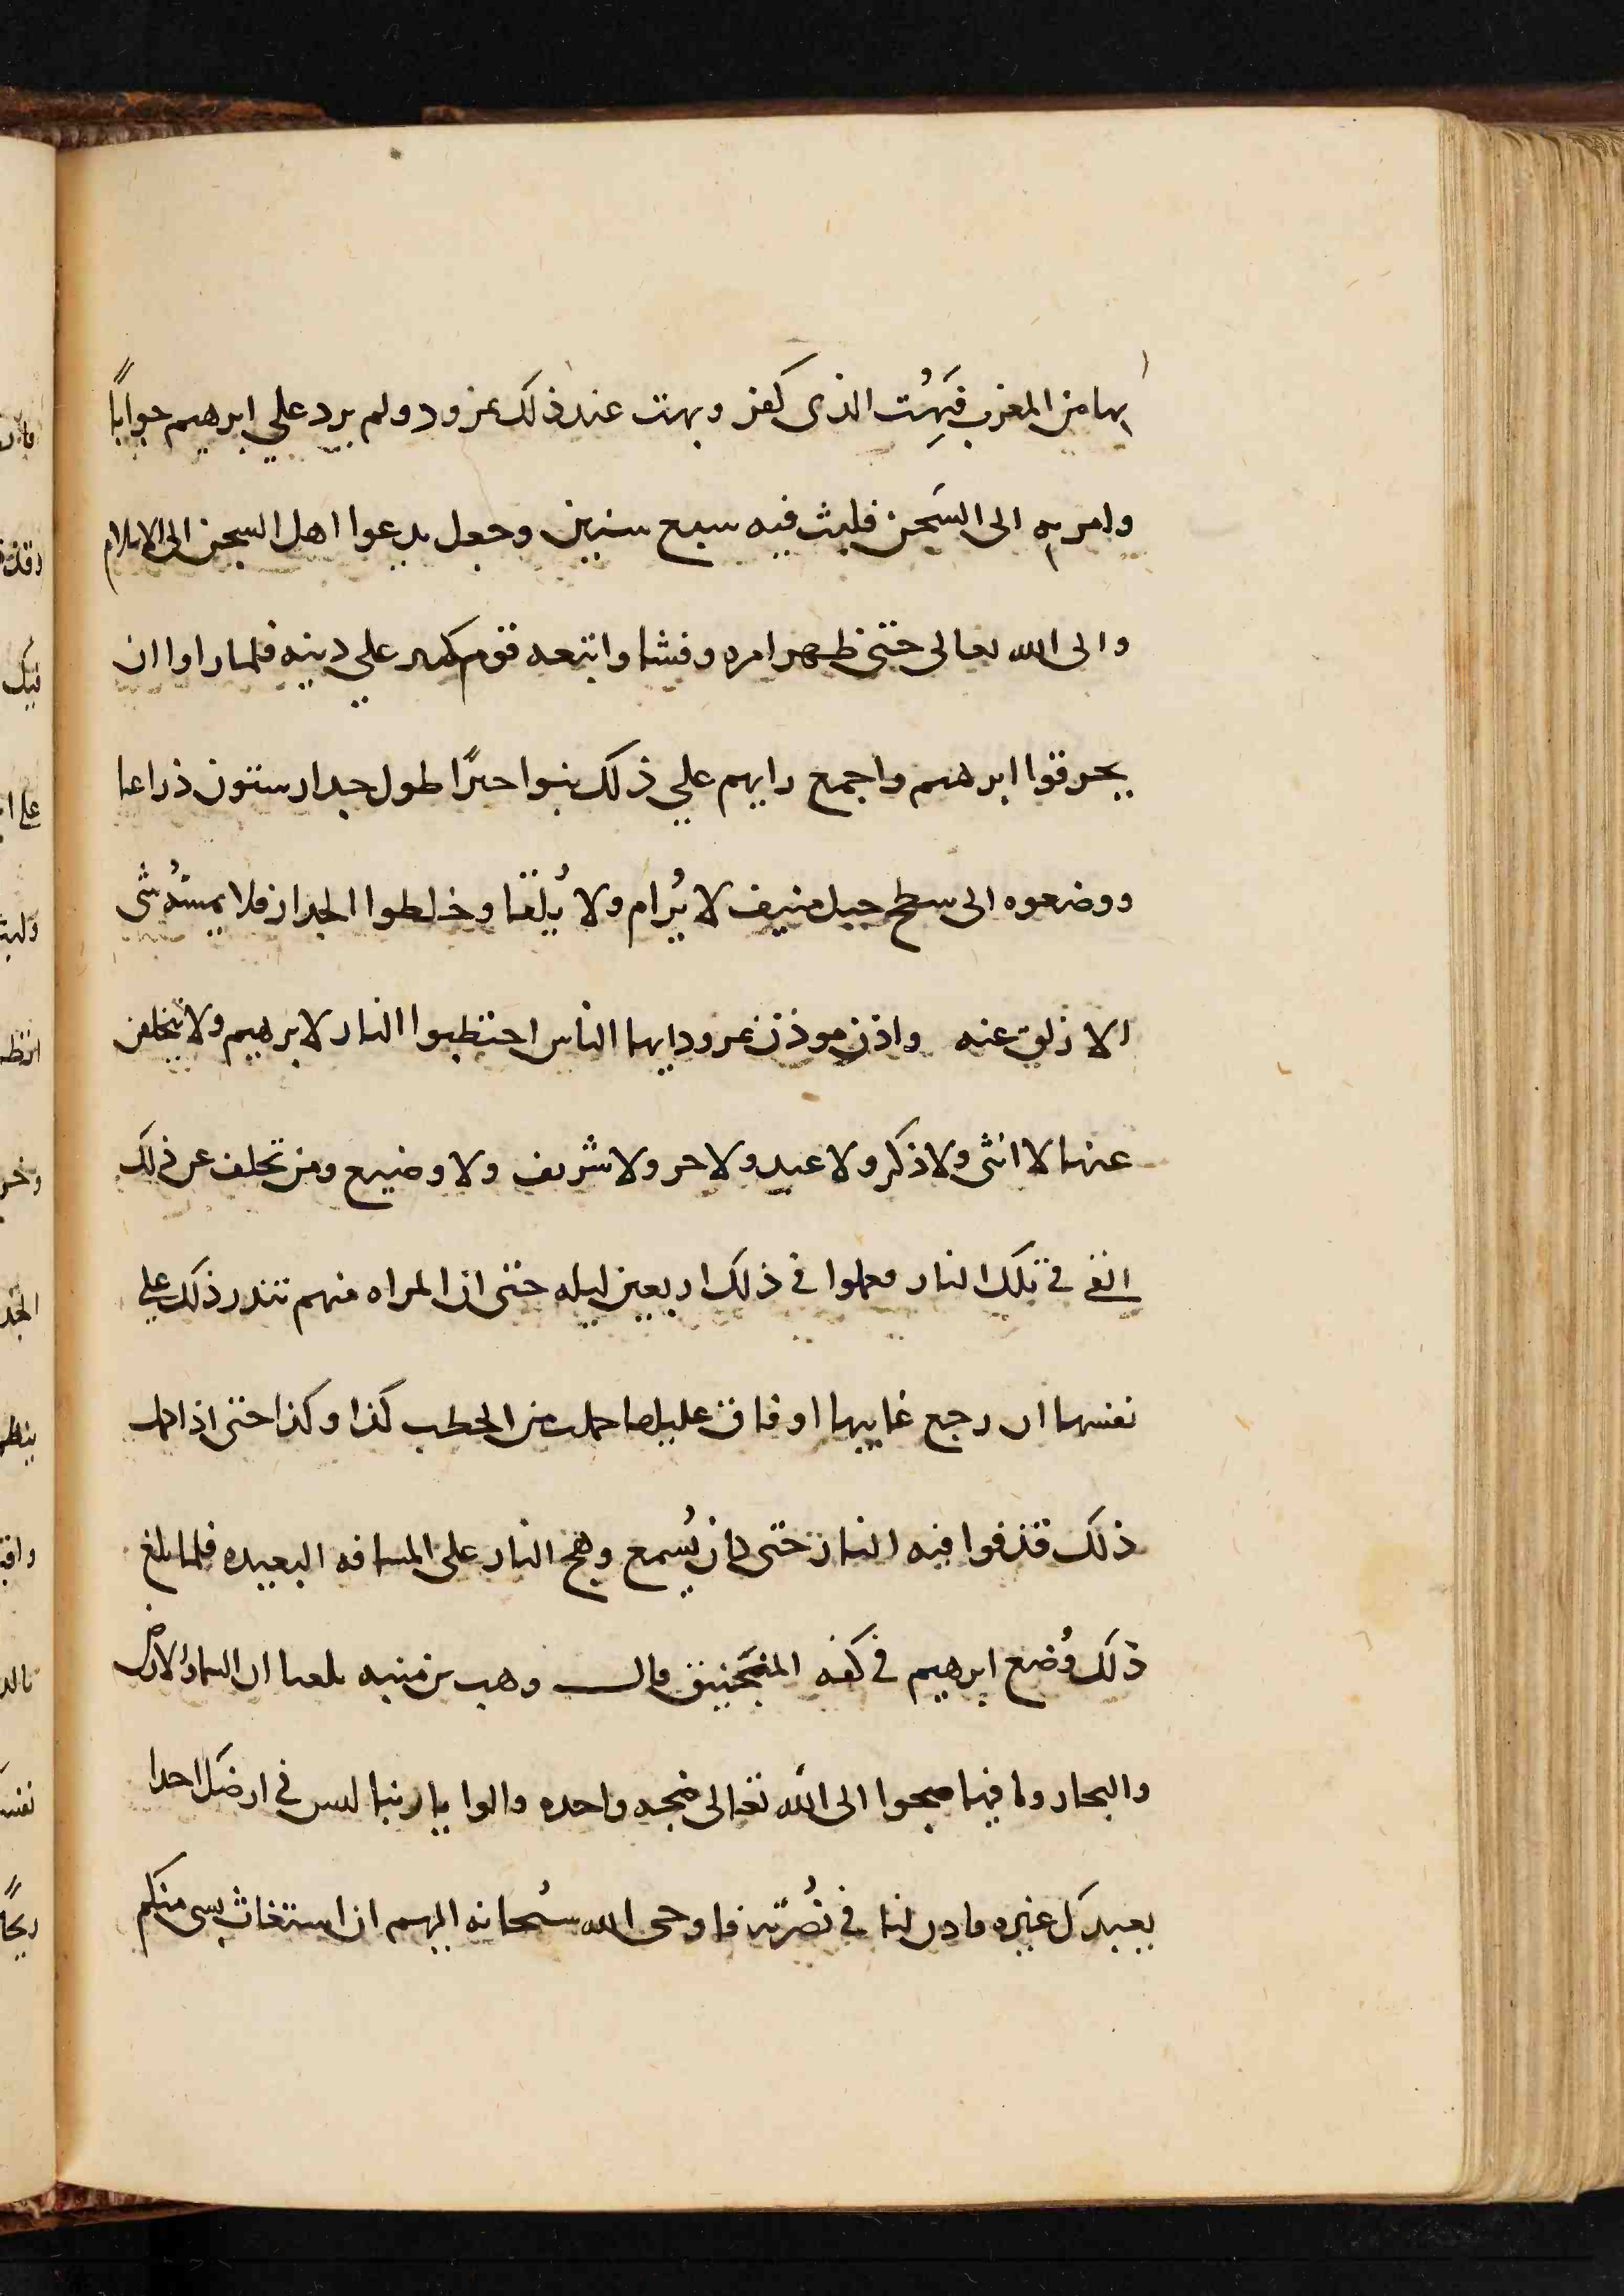 بها من المغرب فَبُهِت الذى كفر وبهت عند ذلك نمرود ولم يرد علي ابرهيم جواباً
وامر به الى السَجن فلبث فيه سبع سنين وجعل يدعوا اهل السجن الى الاسلام
والى الله تعالى حتى ظهر امره وفشا واتبعه قوم كثير علي دينه فلما راوا ان
يحرقوا ابرهيم واجمع رايهم علي ذلك بنوا حيرًا طول جدار ستون ذراعا
ووضعوه الى سطح جبل منيف لا يُرام ولا يُلقا وخلطوا الجدار فلا يمسّهُ شى
الا زلق عنه واذن موذن نمرود ايها الناس احتطبوا النار لابرهيم ولا يتخلفن
عنها لا انثى ولا ذكر ولا عبد ولا حر ولا شريف ولا وضيع ومن تخلف عن ذلك
القي في تلك النار فعملوا في ذلك اربعين ليله حتى ان المراه منهم تنذر ذلك علي
نفسها ان رجع غايبها او فاق عليلها حملت من الحطب كذا وكذا حتى اذا كمل
ذلك قذفوا فيه النار حتى كان يُسمع وهج النار على المسافه البعيده فلما بلغ
ذلك وُضع ابرهيم في كفه المنجَنيق قال وهب بن منبه بلغنا ان السما والارض
والبحار وما فيها ضجوا الى الله تعالى ضجه واحده وقالوا يا ربنا ليس في ارضك احدا
يعبدك غيره فاذن لنا في نُصْرته فاوحى الله سُبحانه اليهم ان استغاث بشى منكم